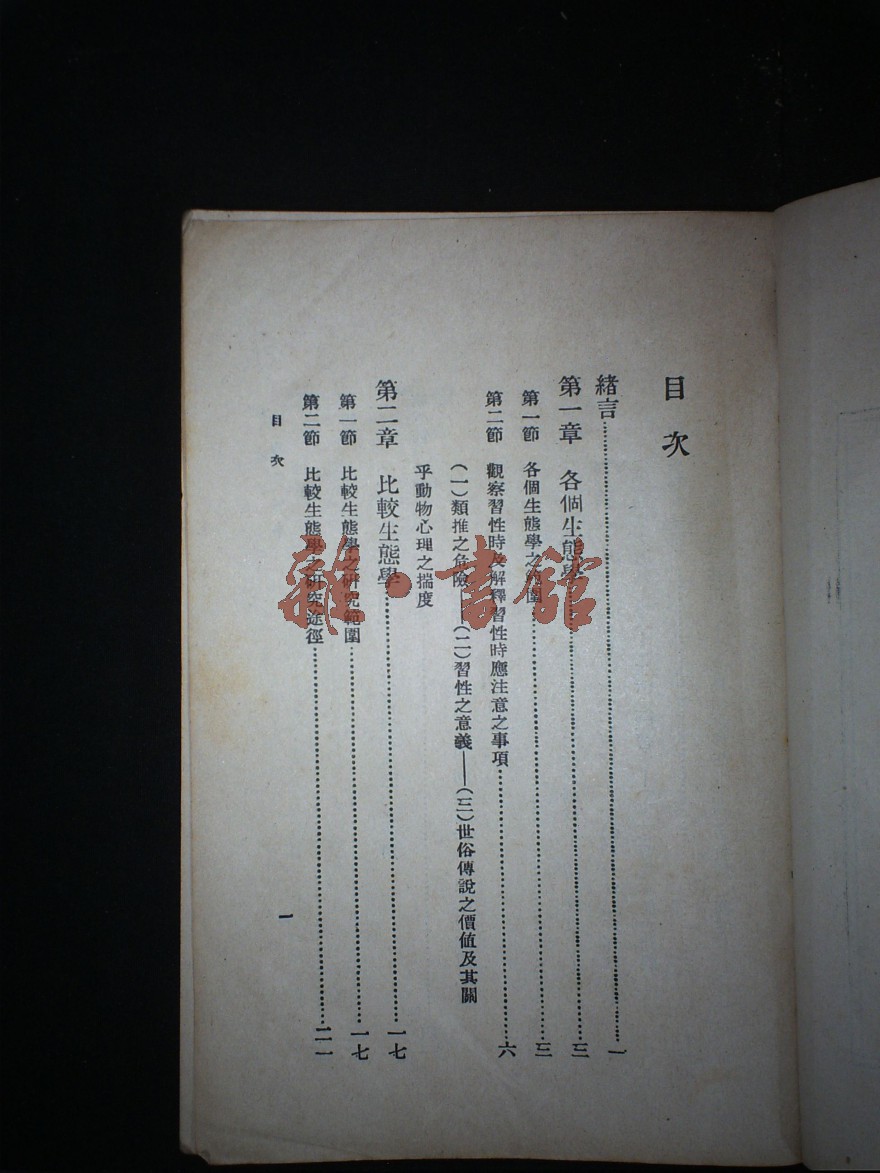 目次
緒言……一
第一章 各個生態學……三
第一節 各個生態學之範圍……三
第二節 觀察習性時及解釋習性時應注意之事項……六
(一)類推之危險——(二)習性之意義——(三)世俗傳說之價值及其關
乎動物心理之揣度
第二章 比較生態學……一七
第一節 比較生態學之研究範圍……一七
第二節 比較生態學之研究途徑……二一
目次
一
雜·書館